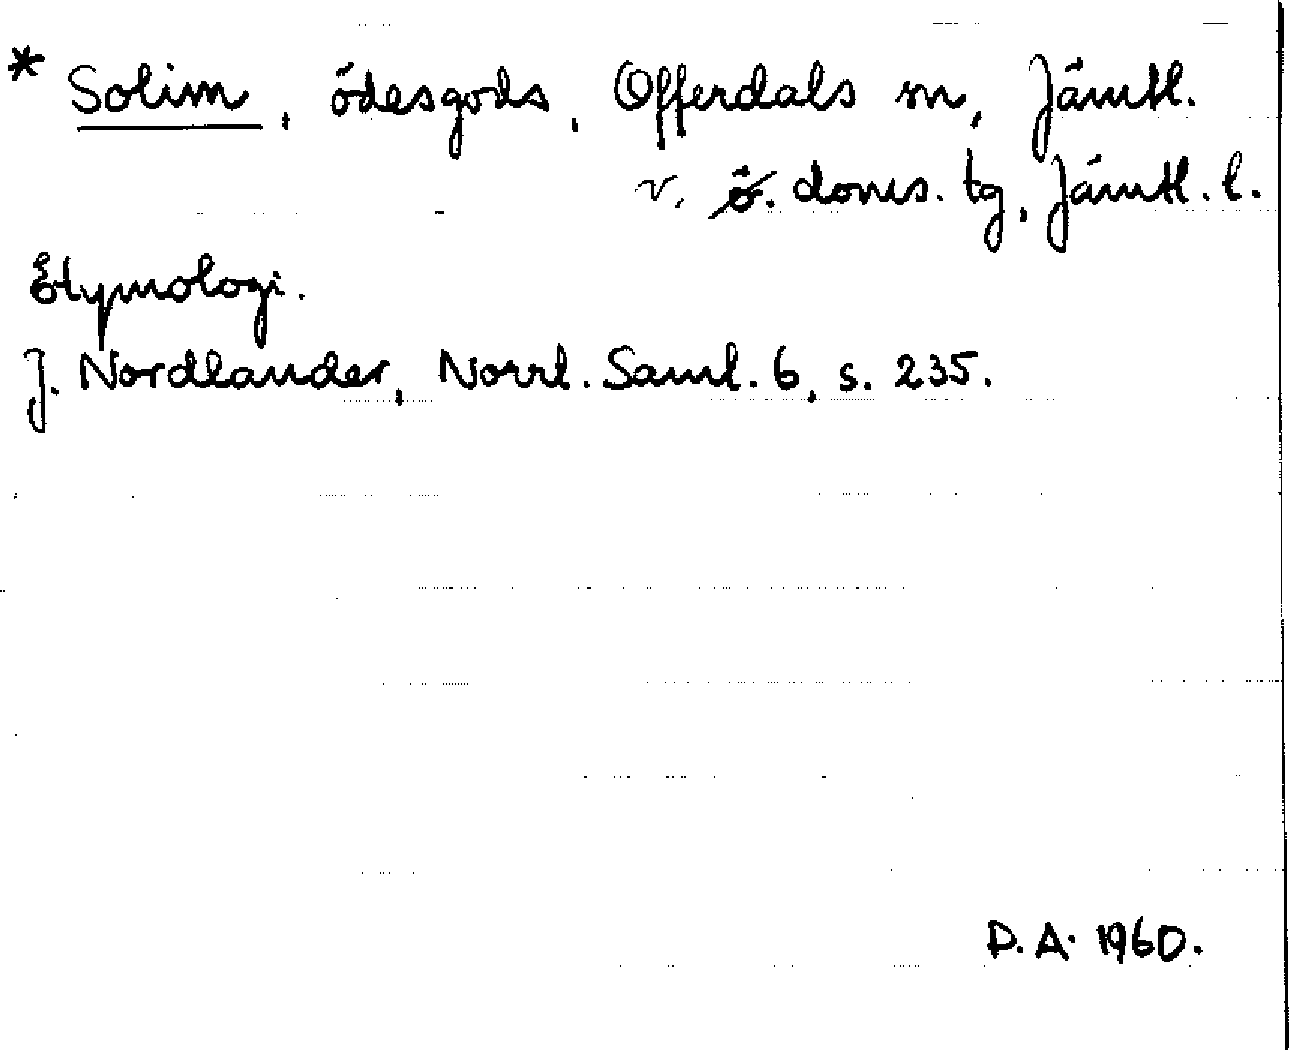 * Solim, ödesgods, Offerdals sn, Jämtl.
v. ö. doms. tg, Jämtl. l.
Etymologi.
J. Nordlander, Norrl. Saml. 6, s. 235.
D.A. 1960.